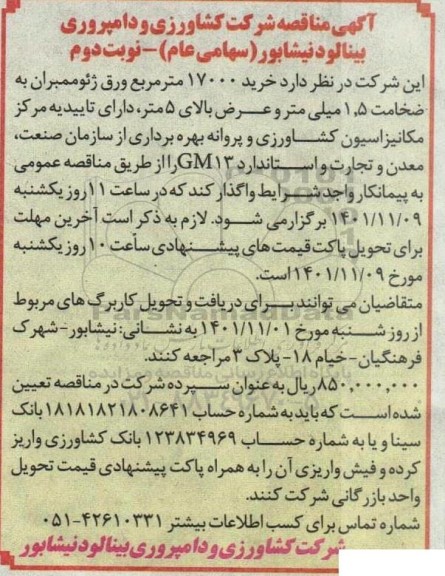 آگهی مناقصه شرکت کشاورزی و دامپروری
بینالود نیشابور (سهامی عام) - نوبت دوم
این شرکت در نظر دارد خرید ۱۷۰۰۰ مترمربع ورق ژئوممبران به
ضخامت ۱,۵ میلی متر و عرض بالای ۵ متر، دارای تاییدیه مرکز
مکانیزاسیون کشاورزی و پروانه بهره برداری از سازمان صنعت،
معدن و تجارت و استاندارد GM۱۳ را از طریق مناقصه عمومی
به پیمانکار واجد شرایط واگذار کند که در ساعت ۱۱ روز یکشنبه
۱۴۰۱/۱۱/۰۹ برگزار می شود. لازم به ذکر است آخرین مهلت
برای تحویل پاکت قیمت های پیشنهادی ساعت ۱۰ روز یکشنبه
مورخ ۱۴۰۱/۱۱/۰۹ است.
متقاضیان می توانند برای دریافت و تحویل کاربرگ های مربوط
از روز شنبه مورخ ۱۴۰۱/۱۱/۰۱ به نشانی: نیشابور - شهرک
فرهنگیان - خیام ۱۸ - پلاک ۳ مراجعه کنند.
۸۵۰,۰۰۰,۰۰۰ ریال به عنوان سپرده شرکت در مناقصه تعیین
شده است که باید به شماره حساب ۱۸۱۸۱۸۲۱۸۰۸۶۴۱ بانک
سینا و یا به شماره حساب ۱۲۳۸۳۴۹۶۹ بانک کشاورزی واریز
کرده و فیش واریزی آن را به همراه پاکت پیشنهادی قیمت تحویل
واحد بازرگانی شرکت کنند.
شماره تماس برای کسب اطلاعات بیشتر ۴۲۶۱۰۳۳۱-۰۵۱
شرکت کشاورزی و دامپروری بینالود نیشابور